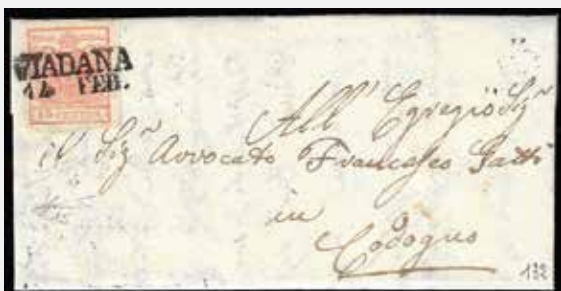 VIADANA
14 FEB.
All' Egregio Sigr
il Sigr Avvocato Francesco Gatti
in
Codogno
132